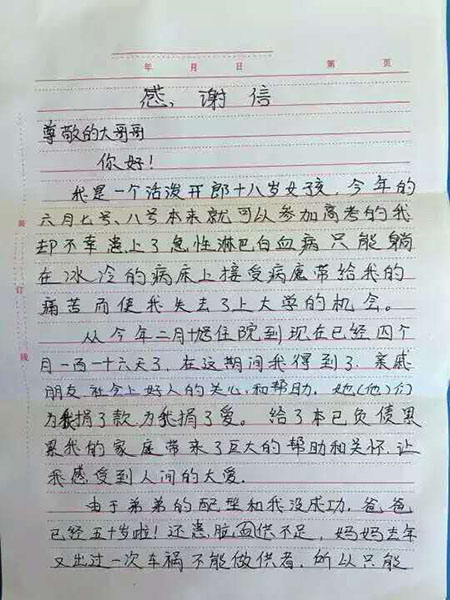 年 月 日 第 页
感、谢信
尊敬的大哥哥
你好!
我是一个活泼开郎十八岁女孩,今年的
六月七号、八号本来就可以参加高考的我
却不幸患上了急性淋巴白血病只能躺
在冰冷的病床上接受病魔带给我的
痛苦而使我失去了上大学的机会。
从今年二月十号住院到现在已经四个
月一百一十六天了,在这期间我得到了,亲戚
朋友,社会上好人的关心,和帮助,她(他)们
为我捐了款,为我捐了爱。给了本已负债累
累我的家庭带来了巨大的帮助和关怀,让
我感受到人间的大爱.
由于弟弟的配型和我没成功,爸爸
已经五十岁啦!还患脑血供不足,妈妈去年
又出过一次车祸不能做供者,所以只能
装
订
线